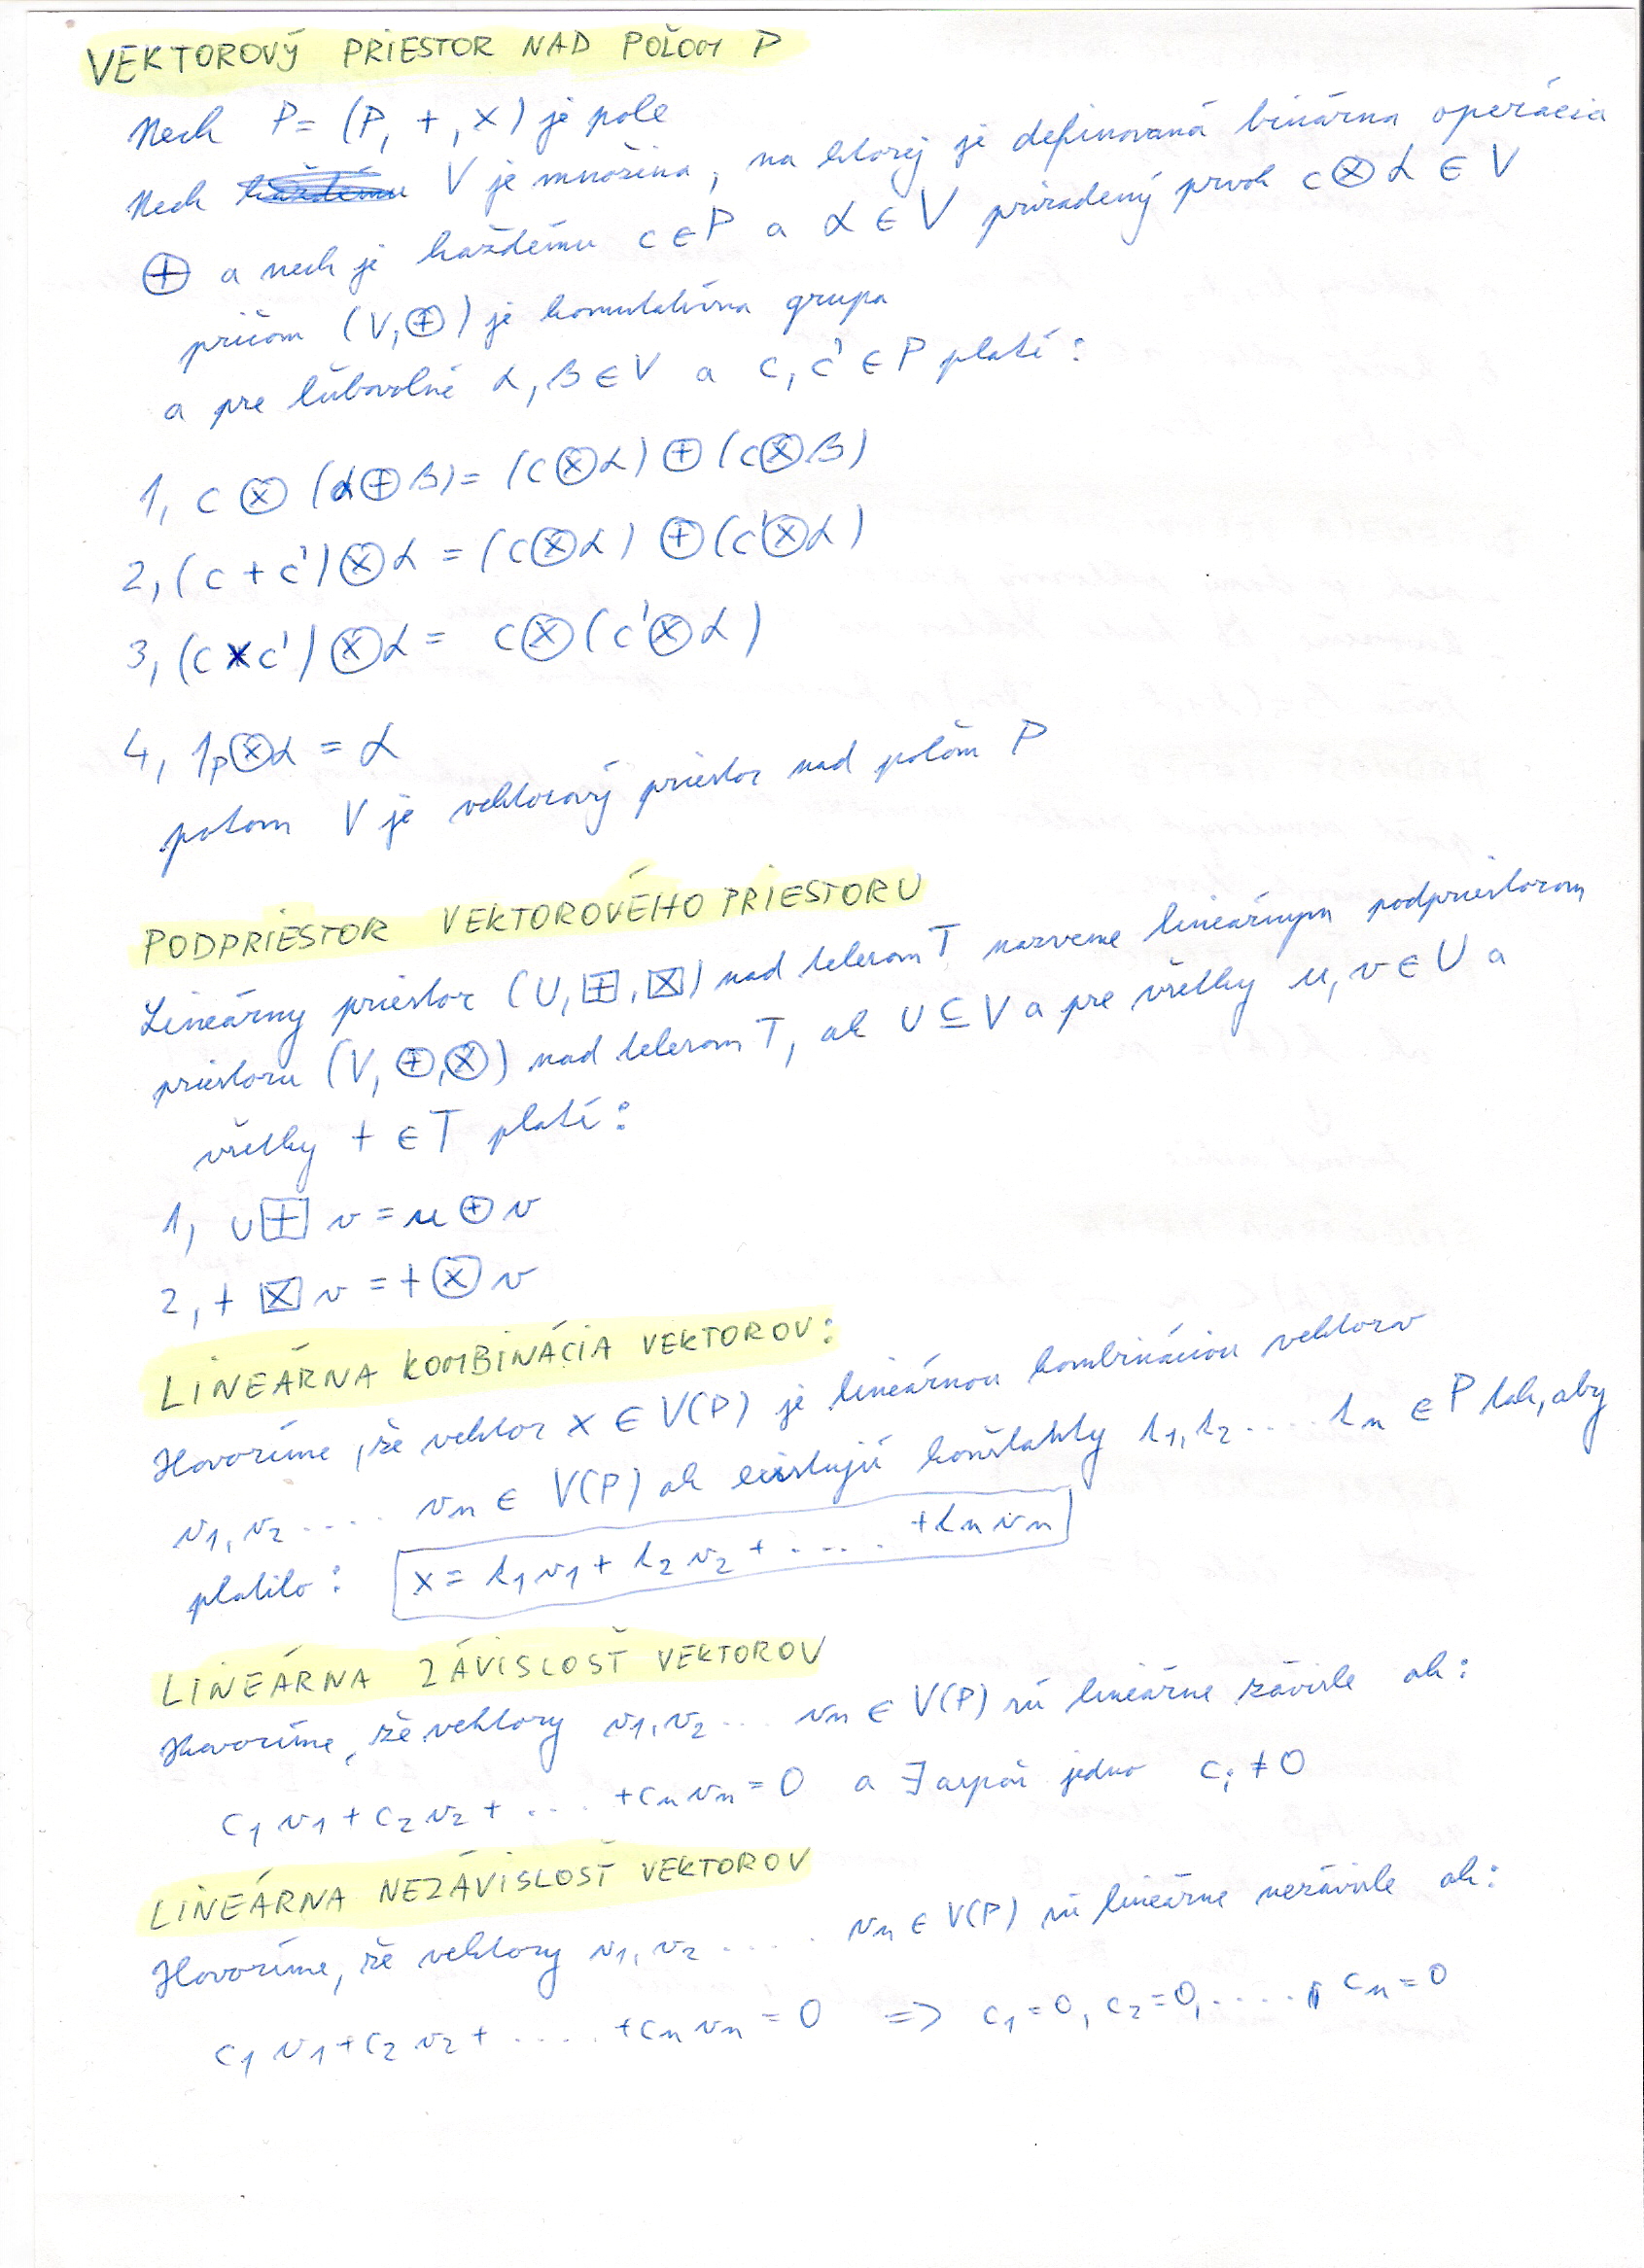 VEKTOROVÝ PRIESTOR NAD POĽOM P
Nech P = (P, +, ×) je pole
Nech V je množina, na ktorej je definovaná binárna operácia
⊕ a nech je každému c ∈ P a α ∈ V priradený prvok c ⊗ α ∈ V
pričom (V, ⊕) je komutatívna grupa
a pre ľubovolné α, β ∈ V a c, c' ∈ P platí:
1, c ⊗ (α ⊕ β) = (c ⊗ α) ⊕ (c ⊗ β)
2, (c + c') ⊗ α = (c ⊗ α) ⊕ (c' ⊗ α)
3, (c × c') ⊗ α = c ⊗ (c' ⊗ α)
4, 1ₚ ⊗ α = α
potom V je vektorový priestor nad poľom P
PODPRIESTOR VEKTOROVÉHO PRIESTORU
Lineárny priestor (U, ⊞, ⊠) nad telesom T nazveme lineárnym podpriestorom
priestoru (V, ⊕, ⊗) nad telesom T, ak U ⊆ V a pre všetky u, v ∈ U a
všetky t ∈ T platí:
1, u ⊞ v = u ⊕ v
2, t ⊠ v = t ⊗ v
LINEÁRNA KOMBINÁCIA VEKTOROV:
Hovoríme, že vektor x ∈ V(P) je lineárnou kombináciou vektorov
v₁, v₂ .... vₙ ∈ V(P) ak existujú konštanty k₁, k₂ .... kₙ ∈ P tak, aby
platilo: x = k₁v₁ + k₂v₂ + ..... + kₙvₙ
LINEÁRNA ZÁVISLOSŤ VEKTOROV
Hovoríme, že vektory v₁, v₂ ... vₙ ∈ V(P) sú lineárne závisle ak:
c₁v₁ + c₂v₂ + .... + cₙvₙ = 0 a ∃ aspoň jedno cᵢ ≠ 0
LINEÁRNA NEZÁVISLOSŤ VEKTOROV
Hovoríme, že vektory v₁, v₂ ..... vₙ ∈ V(P) sú lineárne nezávisle ak:
c₁v₁ + c₂v₂ + ..... + cₙvₙ = 0 => c₁ = 0, c₂ = 0, ....., cₙ = 0